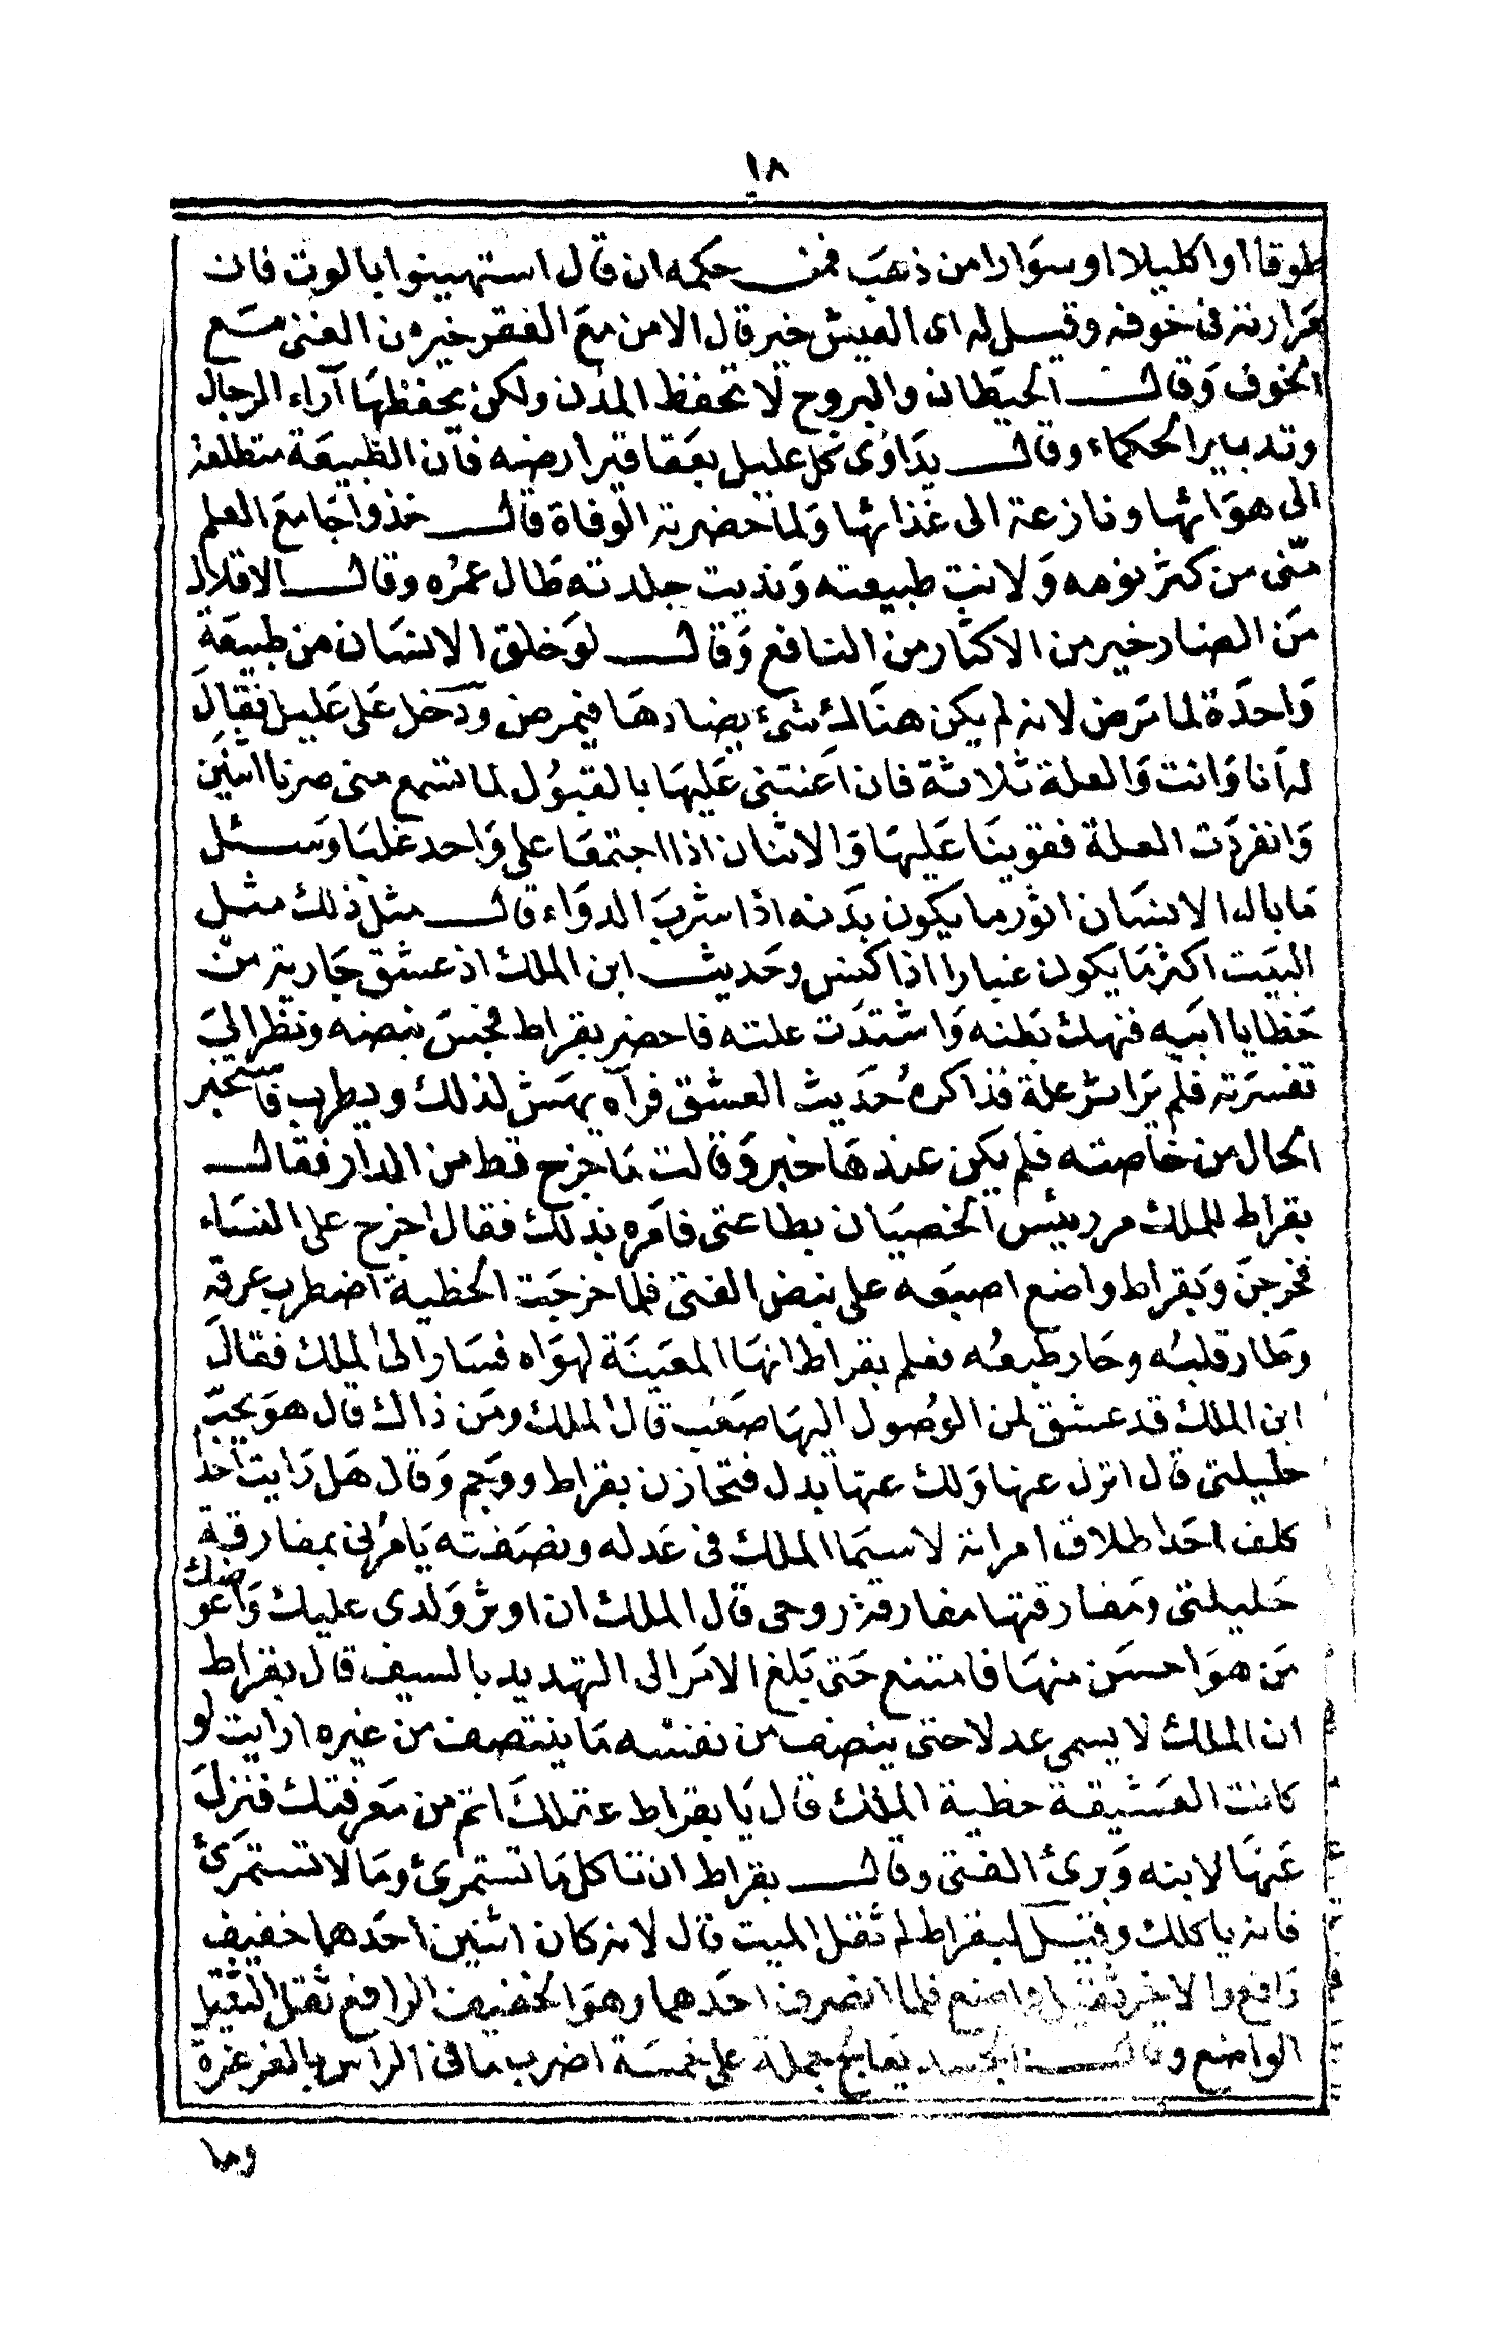 ١٨
طوقا او اكليلا او سوارا من ذهب فمن حكمه ان قال استهينوا بالموت فان
مرارته فى خوفه وقيل له اى العيش خير قال الامن مع الفقر خير من الغنى مع
الخوف وقال الحيطان والبروج لا تحفظ المدن ولكن يحفظها آراء الرجال
وتدبير الحكماء وقال يداوى كل عليل بعقاقير ارضه فان الطبيعة متطلعة
الى هوائها ونازعة الى غذائها ولما حضرته الوفاة قال خذوا جامع العلم
منى من كثر نومه ولانت طبيعته ونديت جلدته طال عمره وقال الاقلال
من الضار خير من الاكثار من النافع وقال لو خلق الانسان من طبيعة
واحدة لما مرض لانه لم يكن هناك شئ يضادها فيمرض ودخل على عليل فقال
له انا وانت والعلة ثلاثة فان اعنتنى عليها بالقبول لما تسمع منى صرنا اثنين
وانفردت العلة فقوينا عليها والاثنان اذا اجتمعا على واحد غلبا وسئل
ما بال الانسان اثور ما يكون بدنه اذا شرب الدواء قال مثل ذلك مثل
البيت اكثر ما يكون غبارا اذا كنس وحديث ابن الملك اذ عشق جارية من
حظايا ابيه فنهك بطنه واشتدت علته فاحضر بقراط فجس نبضه ونظر الى
تفسرته فلم ير اثر علة فذاكره حديث العشق فرآه يهش لذلك ويطرب فاستخبر
الحال من خاصته فلم يكن عندها خبر وقالت ما خرج قط من الدار فقال
بقراط للملك مر رئيس الخصيان بطاعتى فامره بذلك فقال اخرج على النساء
فخرجن وبقراط واضع اصبعه على نبض الفتى فلما خرجت الحظية اضطرب عرقه
وطار قلبه وحار طبعه فعلم بقراط انها المعينة لهواه فسار الى الملك فقال
ابن الملك قد عشق لمن الوصول اليها صعب قال الملك ومن ذاك قال هو يحب
حليلتى قال انزل عنها ولك عنها بدل فتحازن بقراط ووجم وقال هل رايت احدا
كلف احدا طلاق امراته لا سيما الملك فى عدله ونصفته يامرنى بمفارقة
حليلتى ومفارقتها مفارقة روحى قال الملك ان اوثر ولدى عليك واعوضك
من هو احسن منها فامتنع حتى بلغ الامر الى التهديد بالسيف قال بقراط
ان الملك لا يسمى عدلا حتى ينصف من نفسه ما ينتصف من غيره ارايت لو
كانت العشيقة حظية الملك قال يا بقراط عقلك اتم من معرفتك فنزل
عنها لابنه وبرئ الفتى وقال بقراط ان تاكل ما تستمرئ وما لا تستمرئ
فانه ياكلك وقيل لبقراط لم ثقل الميت قال لانه كان اثنين احدهما خفيف
رافع والاخر ثقيل واضع فلما انصرف احدهما وهو الخفيف الرافع ثقل الثقيل
الواضع وقال الجسد يعالج جملة على خمسة اضرب ما فى الراس بالغرغرة
وما